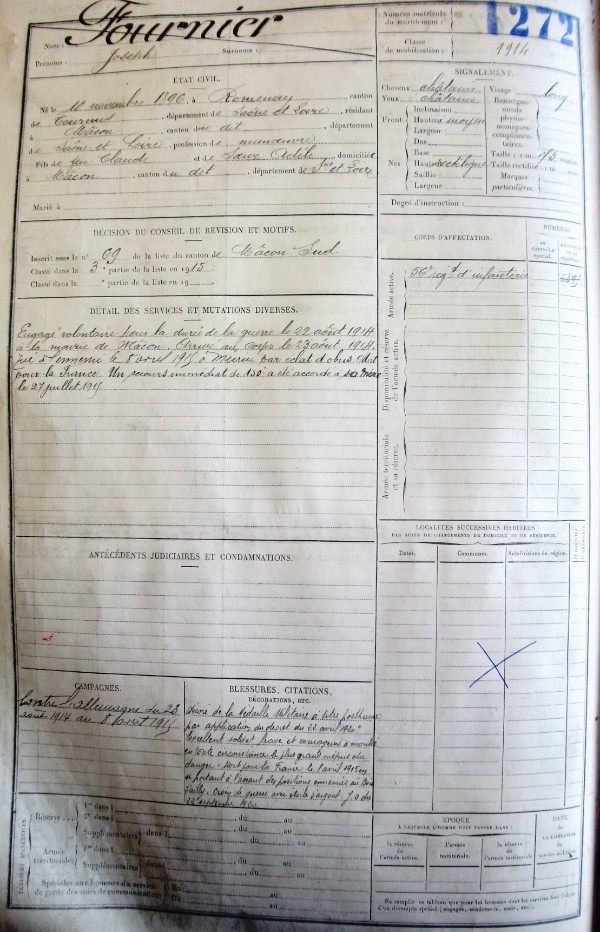 Nom : Fournier
Prénoms : Joseph Surnoms :
Numéro matricule du recrutement : 1272
Classe de mobilisation : 1914
ETAT CIVIL.
Né le 11 novembre 1896, à Romenay, canton
de Tournus, département de Saône et Loire, résidant
à Mâcon, canton du dit, département
de Saône et Loire, profession de manœuvre
Fils de feu Claude et de domicilié
à Mâcon, canton du dit, département de
Marié à
SIGNALEMENT.
Cheveux châtains Visage : long
Yeux châtains
Renseignements physionomiques complémentaires :
Front Inclinaison
Hauteur moyen
Largeur
Nez Dos
Base
Hauteur rectiligne
Saillie
Largeur
Taille : 1 m.
Taille rectifiée : 1 m.
Marques particulières.
Degré d'instruction :
DÉCISION DU CONSEIL DE REVISION ET MOTIFS.
Inscrit sous le n° 69 de la liste du canton de Mâcon Sud
Classé dans la 3e partie de la liste en 1915
Classé dans la e partie de la liste en 19
CORPS D'AFFECTATION.
NUMÉROS
Armée active.
d'infanterie
Disponibilité et réserve de l'armée active.
Armée territoriale et sa réserve.
DÉTAIL DES SERVICES ET MUTATIONS DIVERSES.
Engagé volontaire pour la durée de la guerre le 22 août 1914
à la mairie de Mâcon. Arrivé au corps le 23 août 1914.
Tué à l'ennemi le 8 avril 1915 à par éclat d'obus. Mort
pour la France. Un secours immédiat de 150f a été accordé à sa mère
le 27 juillet 1915
LOCALITÉS SUCCESSIVES HABITÉES
PAR SUITE DE CHANGEMENTS DE DOMICILE OU DE RÉSIDENCE.
Dates. Communes. Subdivisions de région.
ANTÉCÉDENTS JUDICIAIRES ET CONDAMNATIONS.
CAMPAGNES.
Contre l'allemagne du 23
août 1914 au 8 avril 1915
BLESSURES, CITATIONS,
DÉCORATIONS, ETC.
de la Médaille Militaire à titre posthume
par application du décret du
Excellent soldat brave et courageux a montré
en toute circonstance le plus grand mépris du
danger. Mort pour la France le avril 1915 en
se portant à l'assaut des positions ennemies au Bois
d'Ailly. Croix de guerre avec étoile d'argent. J. O. du
septembre
Réserve
1er dans l du au
2e dans l du au
Supplémentaires dans l du au
Armée territoriale
1er dans l du au
2e dans l du au
Supplémentaires du au
Spéciales aux hommes du service de garde des voies de communication
du au
du au
EPOQUE
À LAQUELLE L'HOMME DOIT PASSER DANS :
la réserve de l'armée active.
l'armée territoriale.
la réserve de l'armée territoriale.
DATE DE LA LIBÉRATION du service militaire